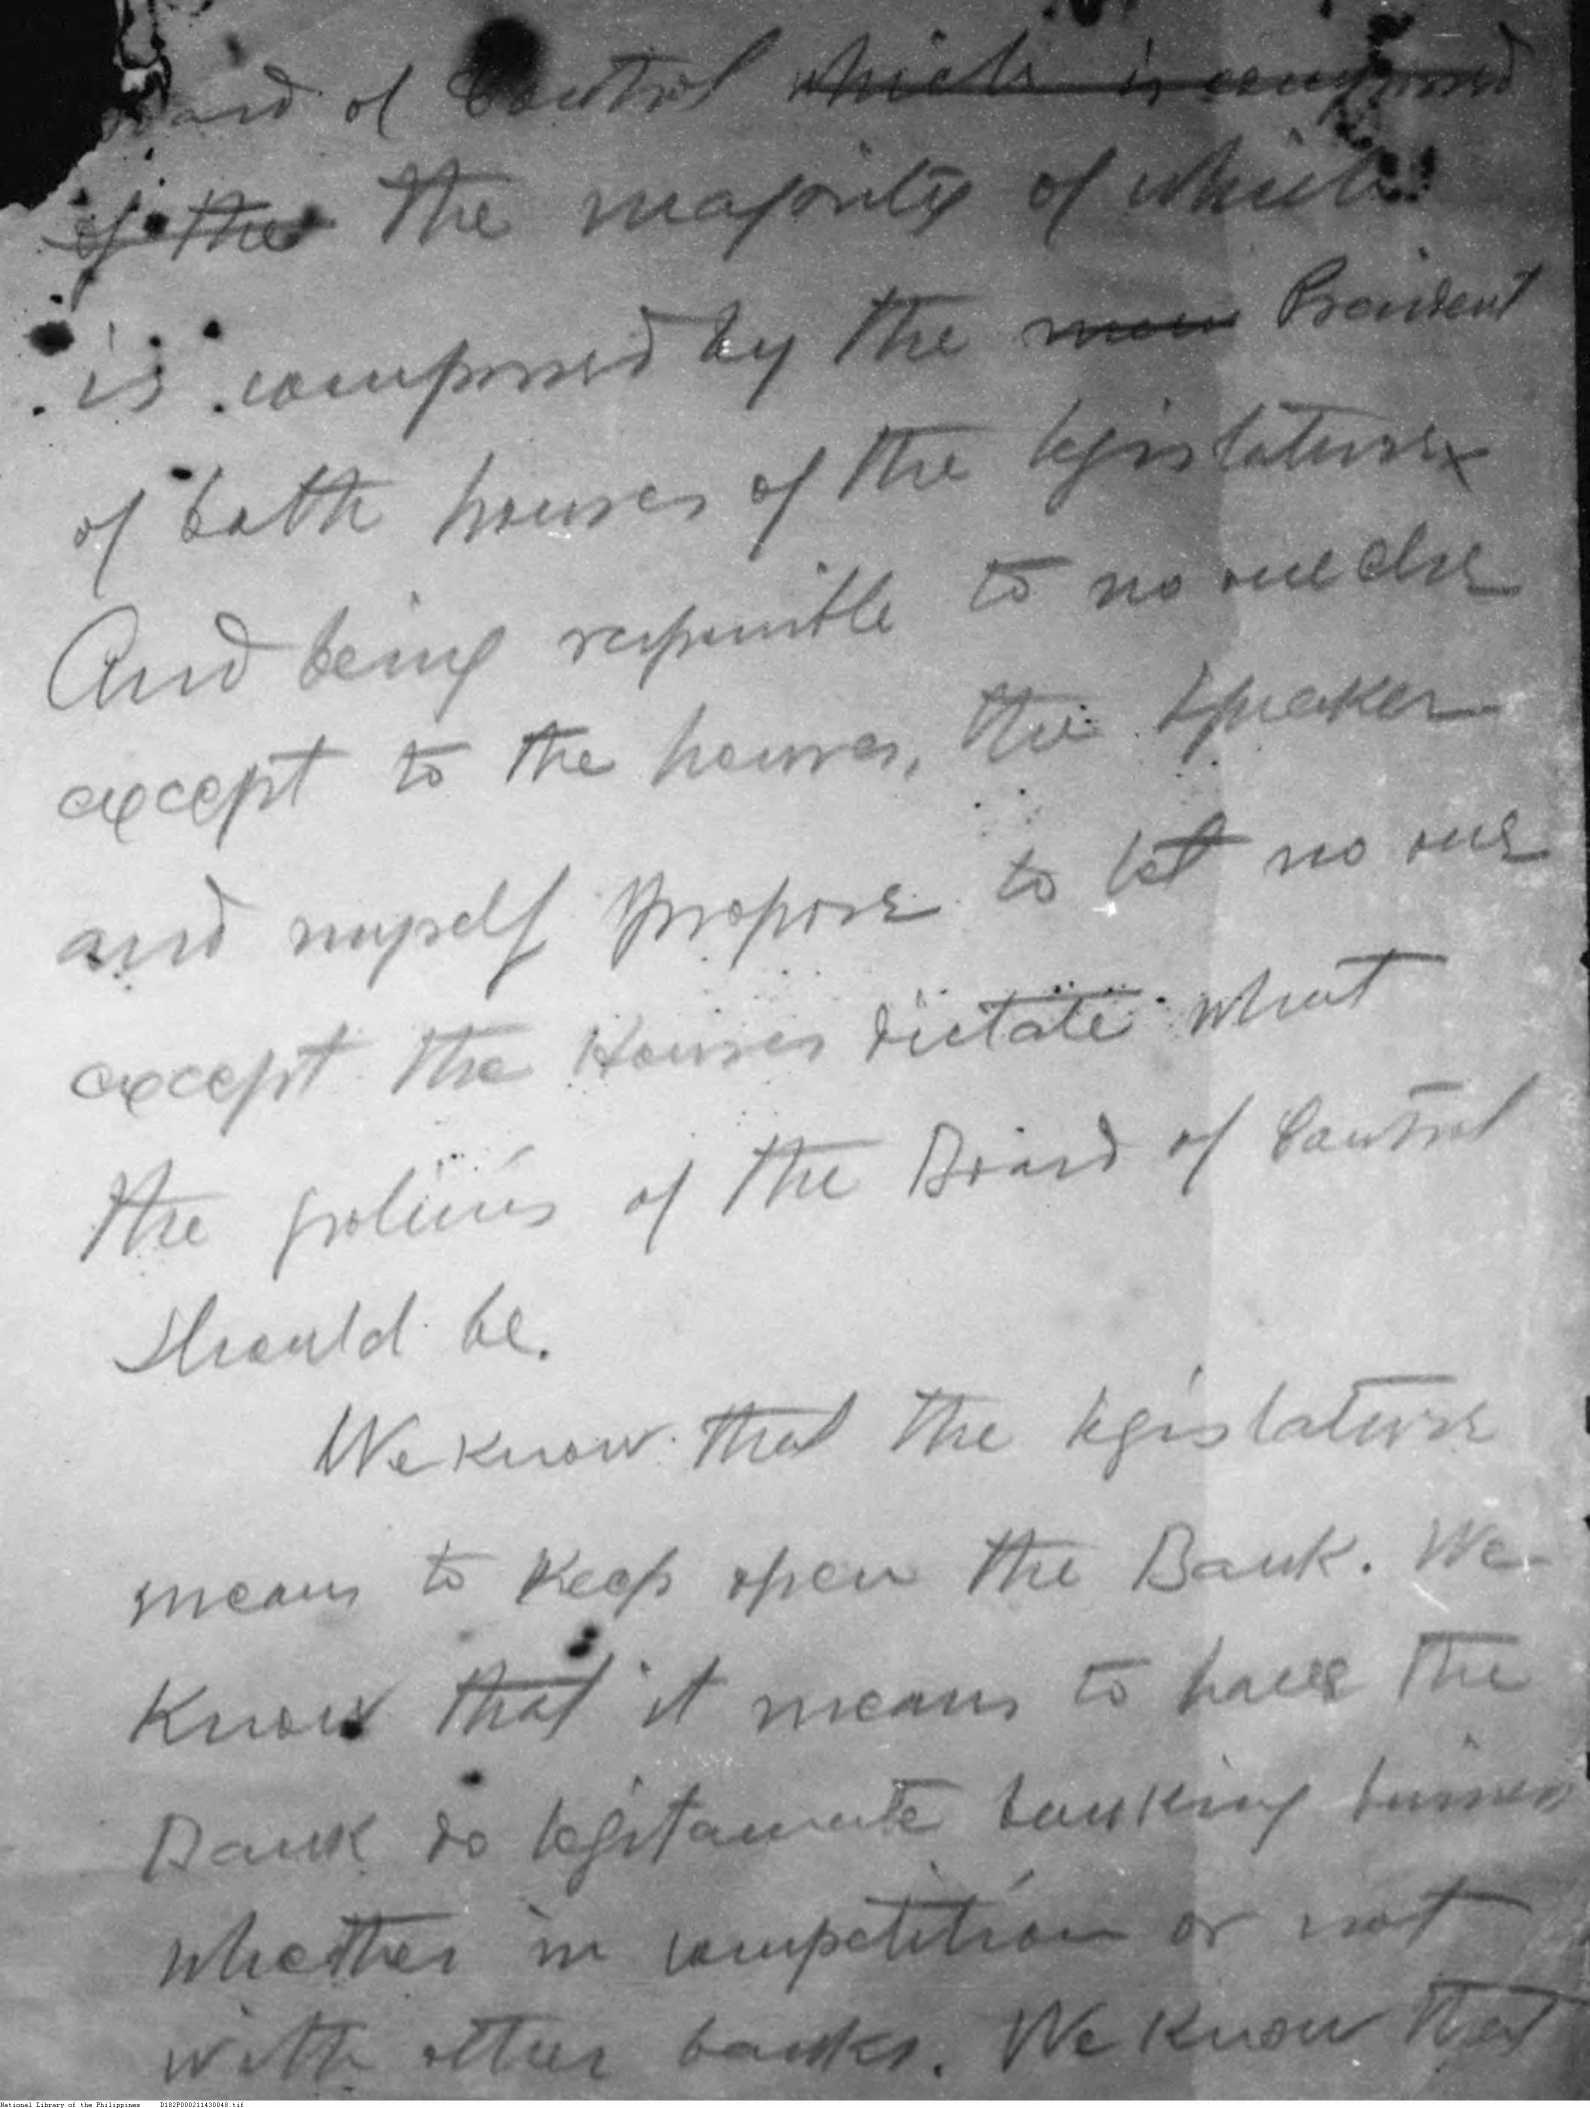 Board of Control which is composed
of the the majority of which
is composed by the President
of both houses of the legislature
And being responsible to no one else
except to the houses, the Speaker
and myself propose to let no one
except the Houses dictate what
the policies of the Board of Control
should be.
We know that the legislature
means to keep open the Bank. We
know that it means to have the
Bank do legitamate banking business
whether in competition or not
with other banks. We know that
National Library of the Philippines D182P000211430048.tif